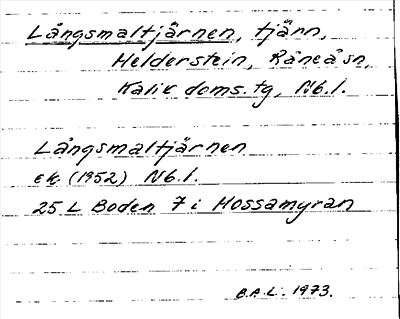 Långsmaltjärnen, tjänn,
Helderstein, Råneå sn,
Kalix doms. tg, Nb. l.
Långsmaltjärnen
ek. (1952) Nb. l.
25 L Boden 7 i Hossamyran
B.A.L. 1973.